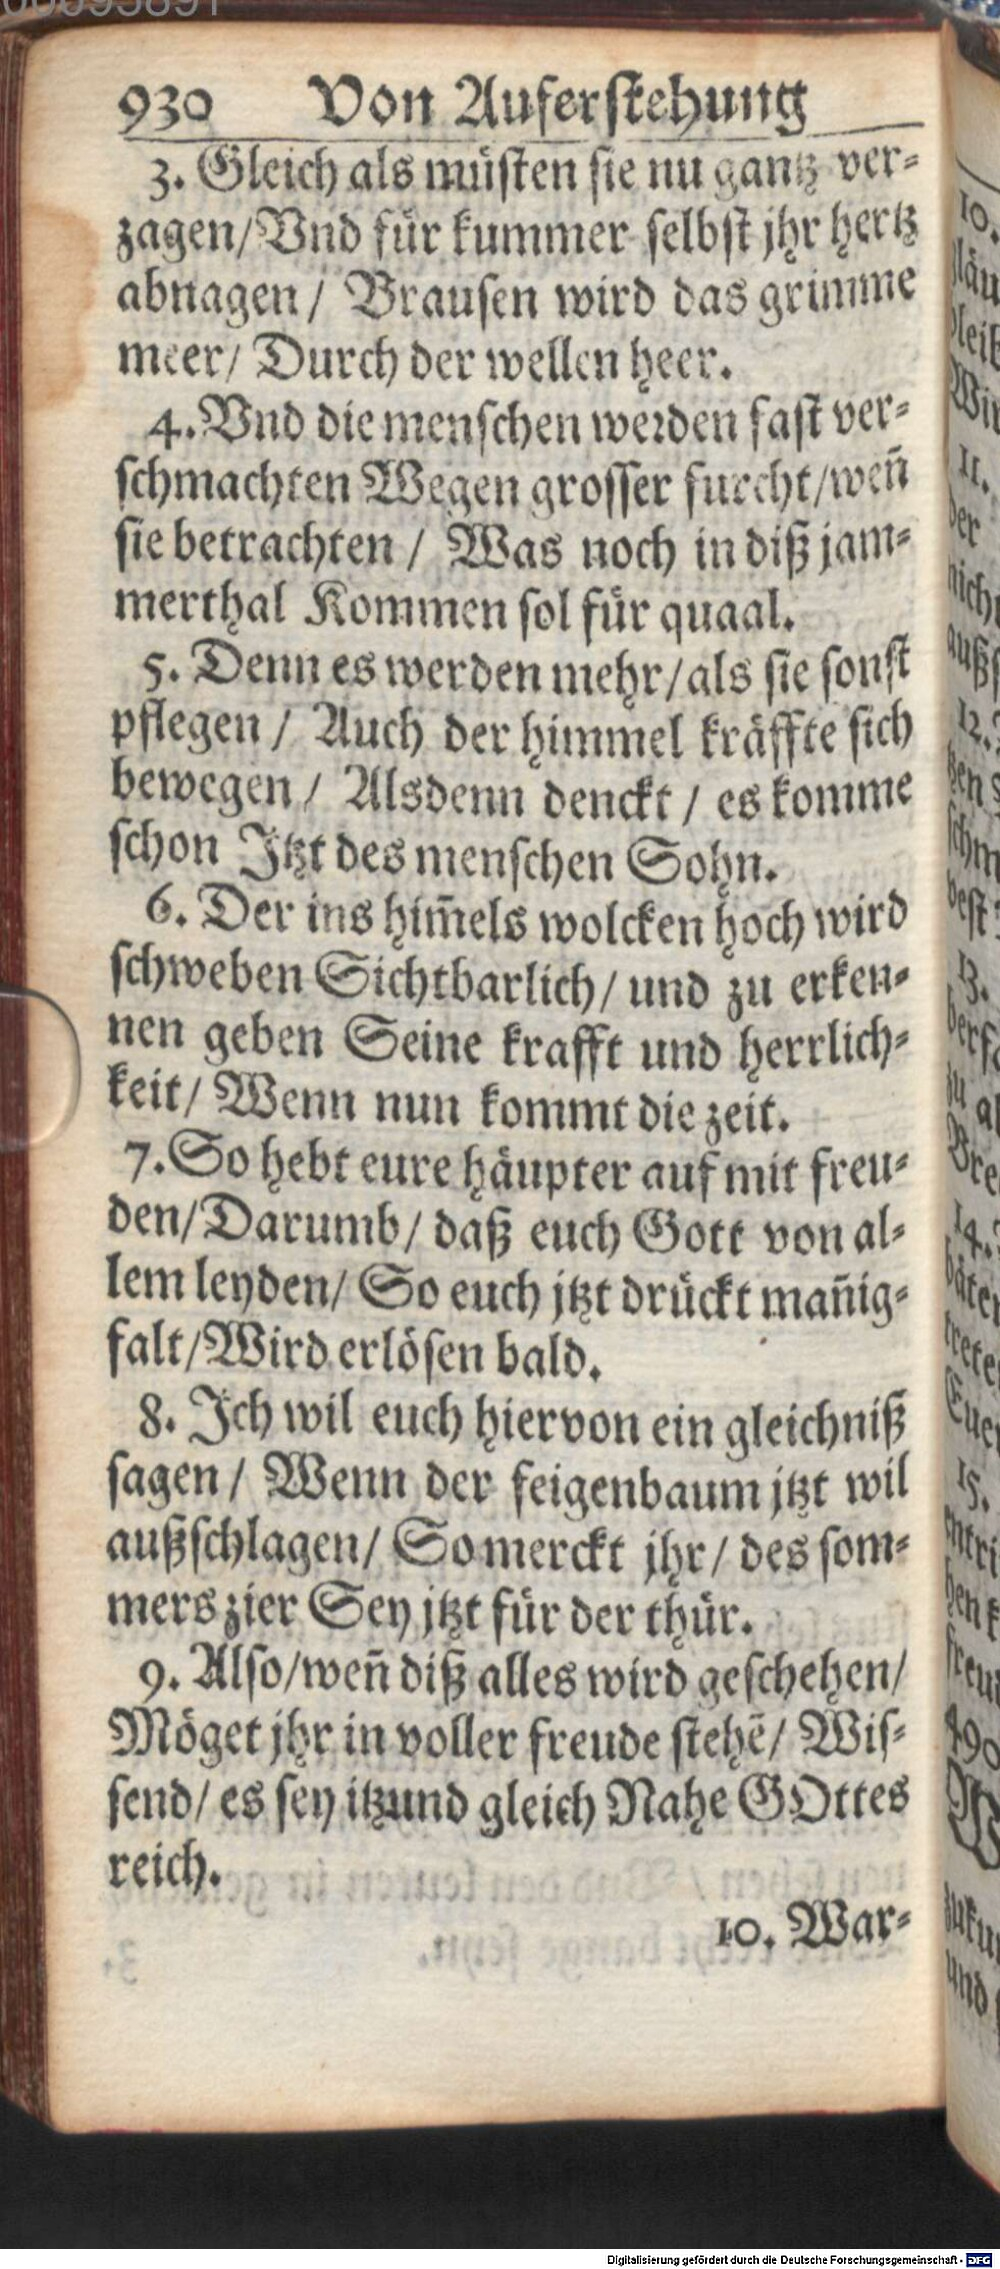 930 Von Auferstehung
3. Gleich als müsten sie nu gantz ver-
zagen/ Vnd für kummer selbst jhr hertz
abnagen/ Brausen wird das grimme
meer/ Durch der wellen heer.
4. Vnd die menschen werden fast ver-
schmachten Wegen grosser furcht/ weñ
sie betrachten/ Was noch in diß jam-
merthal Kommen sol für quaal.
5. Denn es werden mehr/ als sie sonst
pflegen/ Auch der himmel kräffte sich
bewegen/ Alsdenn denckt/ es komme
schon Jtzt des menschen Sohn.
6. Der ins him̃els wolcken hoch wird
schweben Sichtbarlich/ und zu erken-
nen geben Seine krafft und herrlich-
keit/ Wenn nun kommt die zeit.
7. So hebt eure häupter auf mit freu-
den/ Darumb/ daß euch Gott von al-
lem leyden/ So euch jtzt drückt mañig-
falt/ Wird erlösen bald.
8. Jch wil euch hiervon ein gleichniß
sagen/ Wenn der feigenbaum jtzt wil
außschlagen/ So merckt jhr/ des som-
mers zier Sey jtzt für der thür.
9. Also/ weñ diß alles wird geschehen/
Möget jhr in voller freude stehẽ/ Wis-
send/ es sey itzund gleich Nahe GOttes
reich.
10. War-
10.
11.
der
12.
13.
14.
15.
490
und
Digitalisierung gefördert durch die Deutsche Forschungsgemeinschaft - DFG